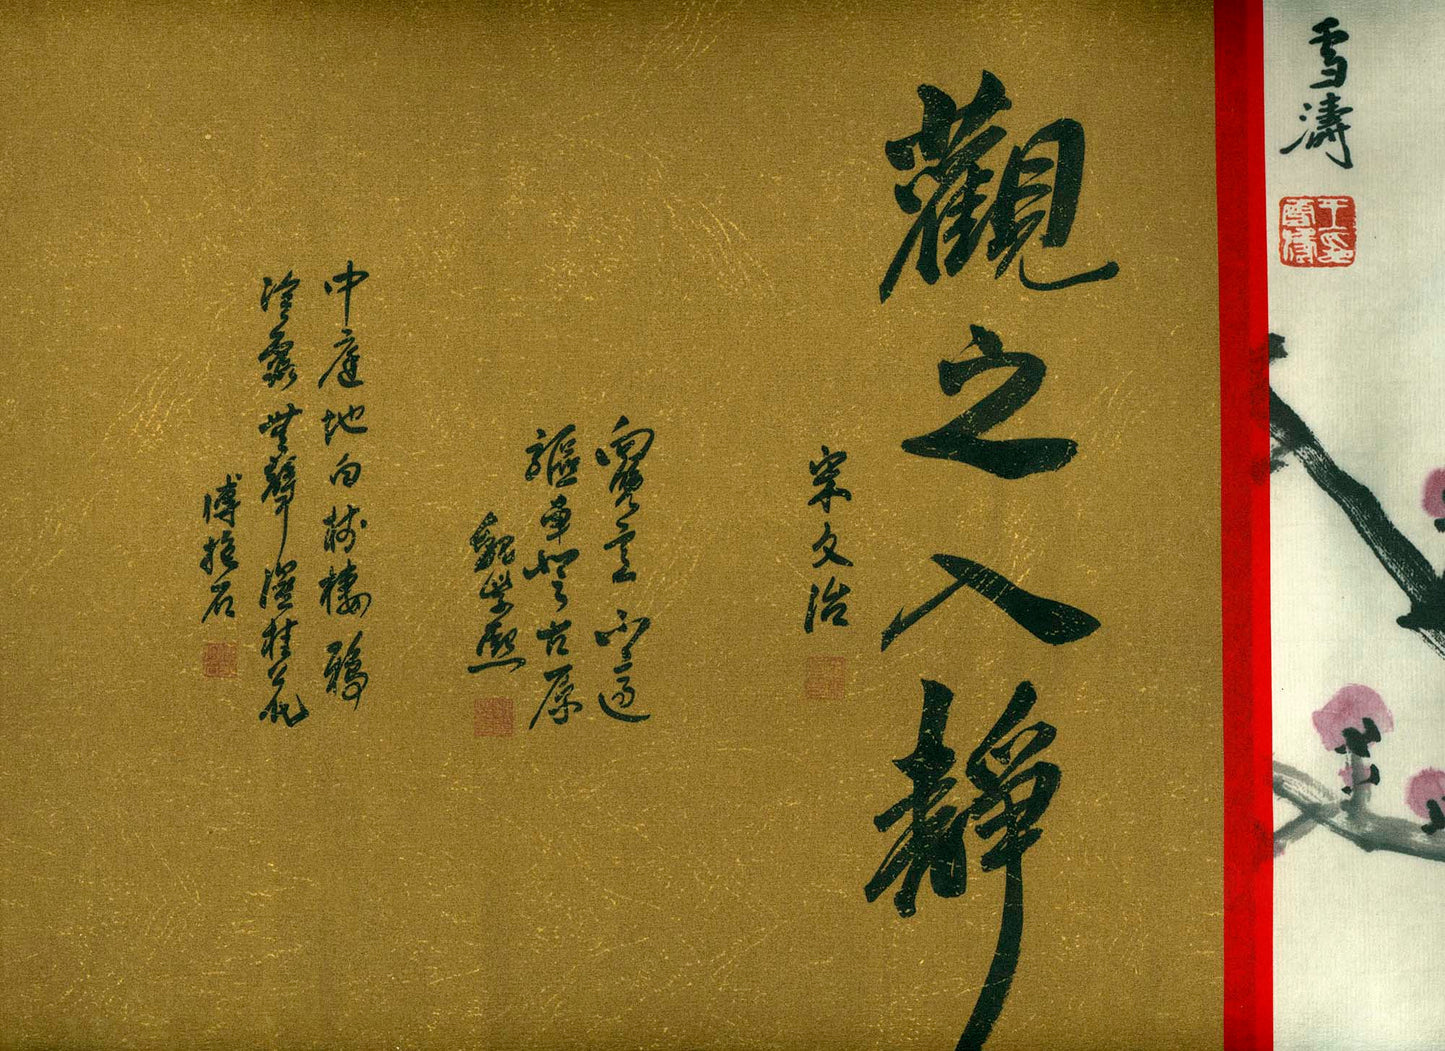 雪濤
王印雪濤
觀之入靜
宋文治
向晚意不適
驅車登古原
魏紫熙
中庭地白樹棲鴉
冷露無聲濕桂花
傅抱石